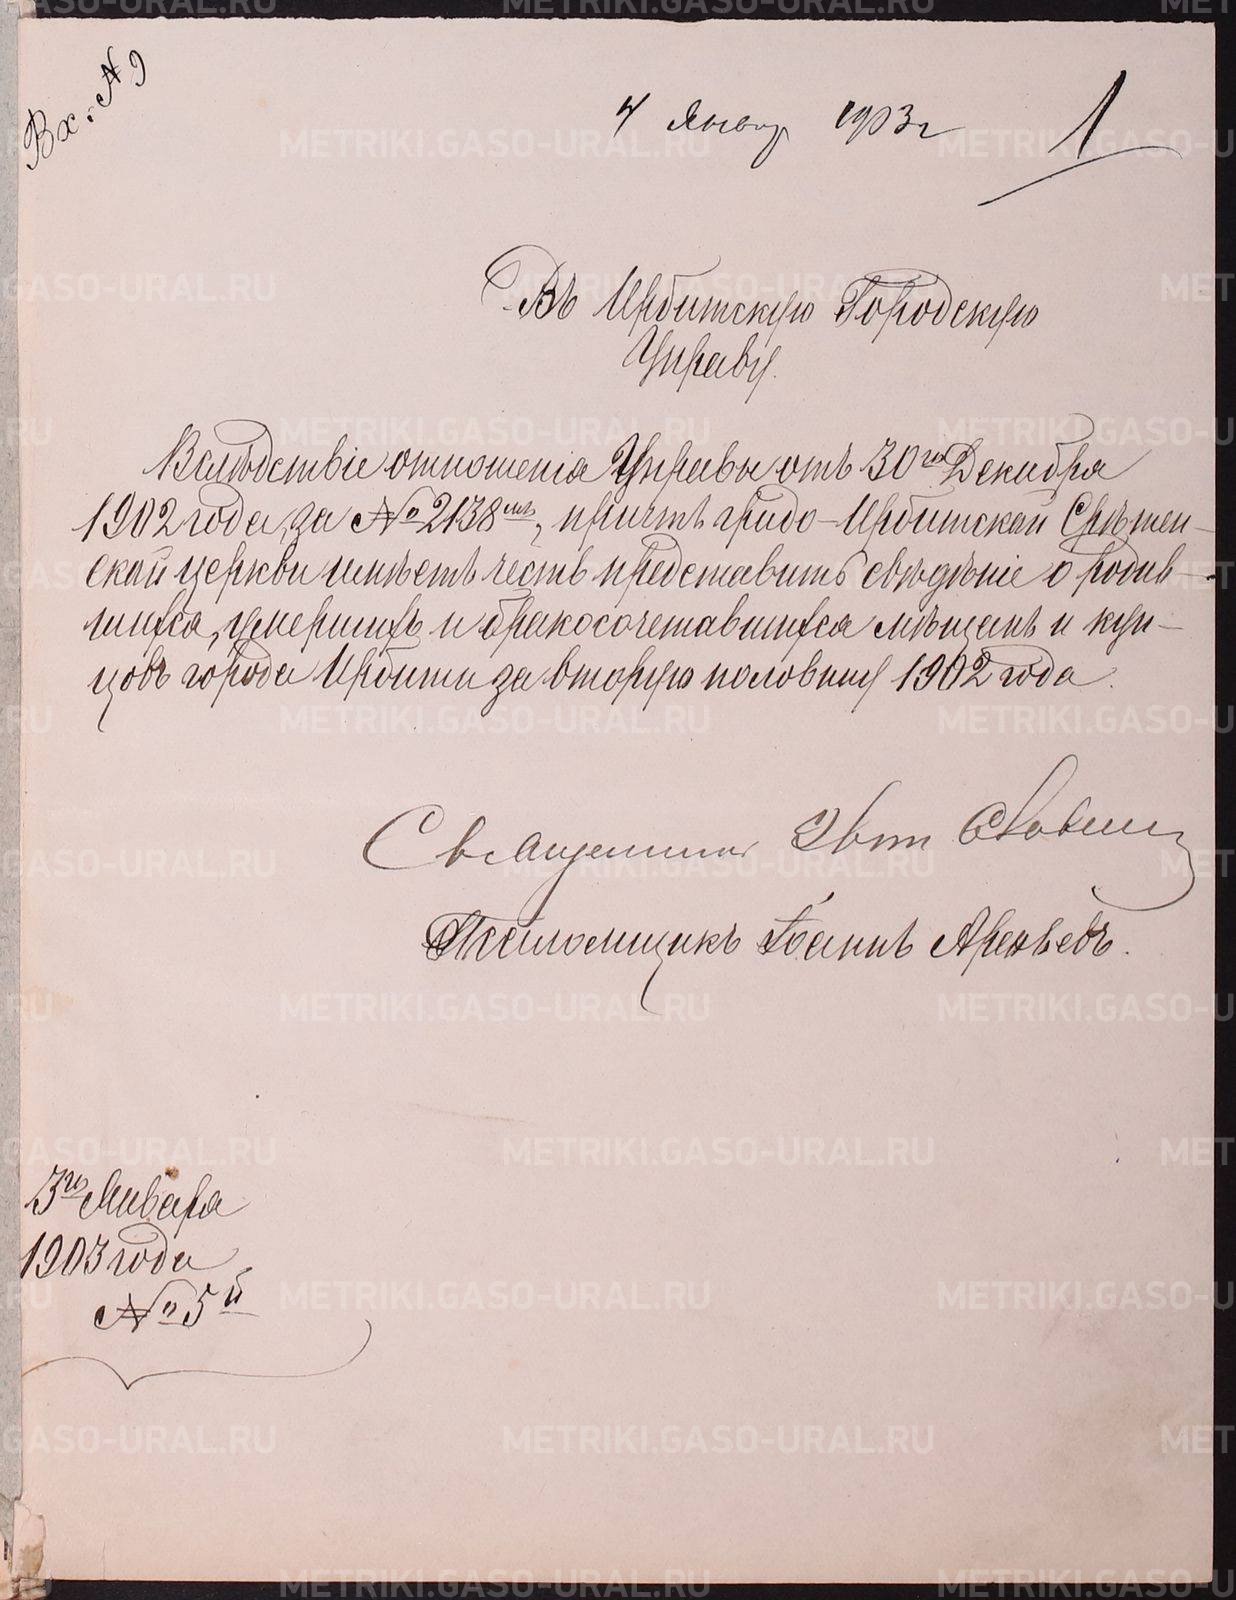 Вх. № 9
4 Январ 1903 г
1
Въ Ирбитскую Городскую
Управу.
Вслѣдствіе отношенія Управы отъ 30го Декабря
1902 года, за № 2138мъ, причтъ градо-Ирбитской Срѣтен-
ской церкви имѣетъ честь представить свѣдѣніе о родив-
шихся, умершихъ и бракосочетавшихся мѣщанъ и куп-
цовъ города Ирбити за вторую половину 1902 года.
Священник
Псаломщикъ Іоаннъ Арефьевъ.
3го Января
1903 года
№ 5й
METRIKI.GASO-URAL.RU